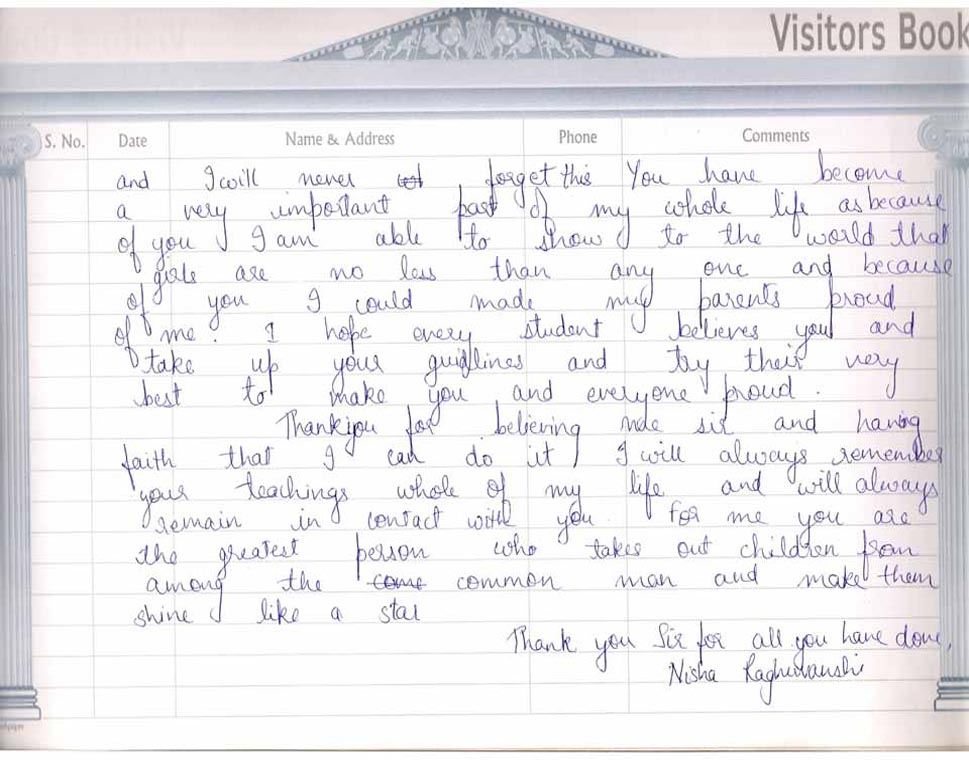 Visitors Book
S. No. Date Name & Address Phone Comments
and I will never forget this You have become
a very important part of my whole life as because
of you I am able to show to the world that
girls are no less than any one and because
of you I could made my parents proud
of me. I hope every student believes you and
take up your guidlines and try their very
best to make you and everyone proud.
Thankyou for believing me sir and having
faith that I can do it I will always remember
your teachings whole of my life and will always
remain in contact with you. For me you are
the greatest person who takes out children from
among the come common man and make them
shine like a star
Thank you Sir for all you have done,
Nisha Raghuwanshi